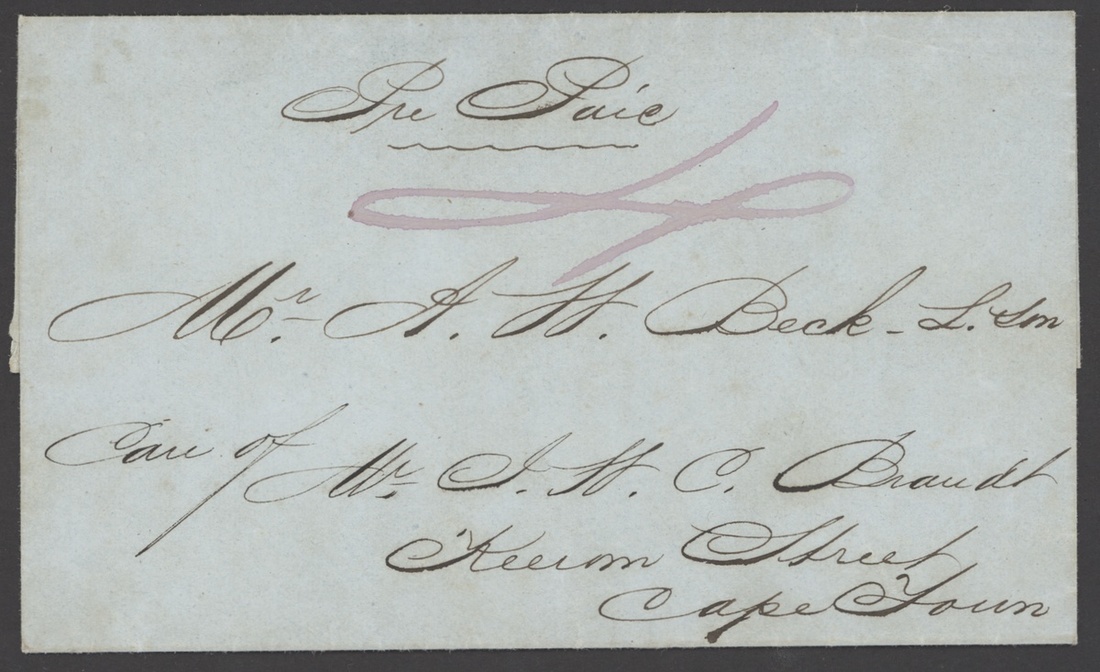 Pre Paid
4
Mr. A. H. Beck - L. Son
Care of Mr. J. H. C. Brandt
Keerom Street
Cape Town